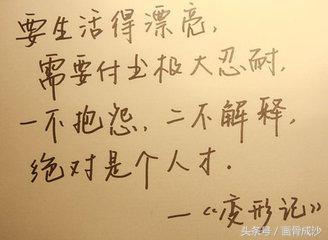 要生活得漂亮,
需要付出极大忍耐,
一不抱怨,二不解释,
绝对是个人才.
—《变形记》
头条号 / 画骨成沙